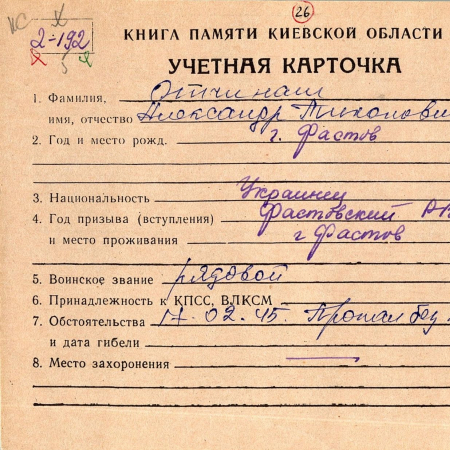 26
2-192
КНИГА ПАМЯТИ КИЕВСКОЙ ОБЛАСТИ
УЧЕТНАЯ КАРТОЧКА
1. Фамилия, Отчинаш
имя, отчество Александр
2. Год и место рожд. г. Фастов
3. Национальность Украинец
4. Год призыва (вступления) Фастовский
и место проживания г Фастов
5. Воинское звание рядовой
6. Принадлежность к КПСС, ВЛКСМ
7. Обстоятельства 17.02.45. Пропал без
и дата гибели
8. Место захоронения